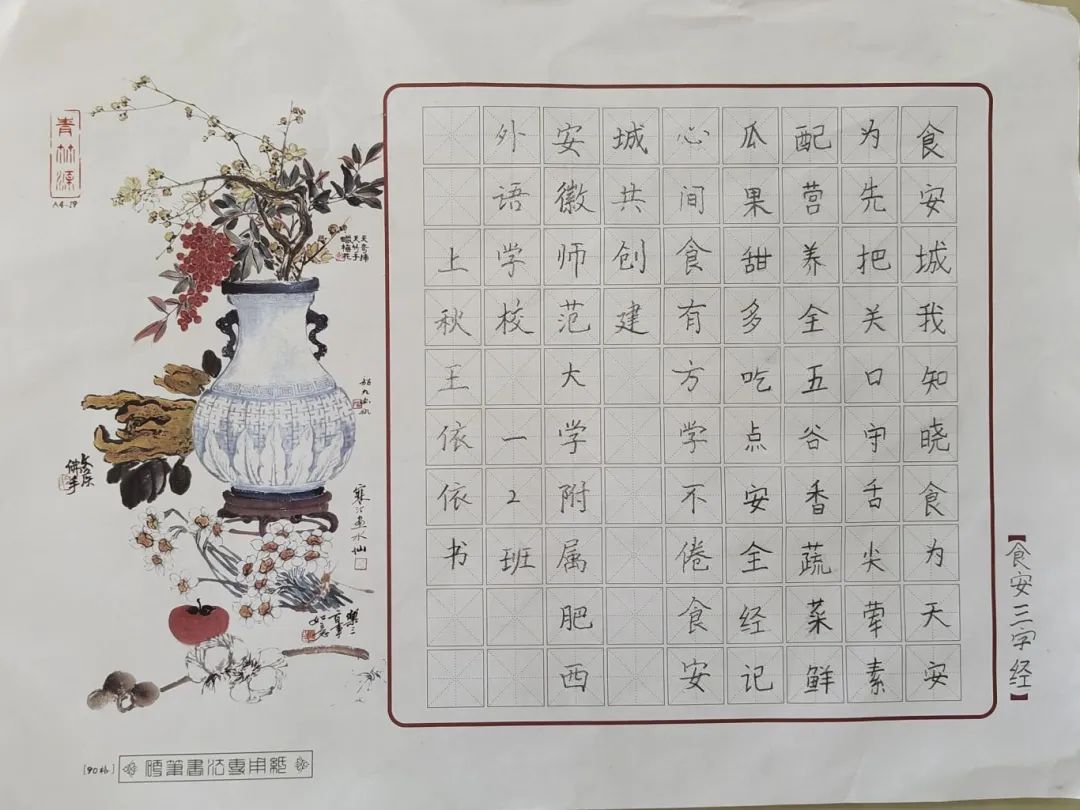 【食安三字经】
食安城我知晓食为天安
为先把关口守舌尖荤素
配营养全五谷香蔬菜鲜
瓜果甜多吃点安全经记
心间食有方学不倦食安
城共创建
安徽师范大学附属肥西
外语学校 一2班
上秋王依依书
青林源
A4-19
[90格]
硬筆書法專用紙